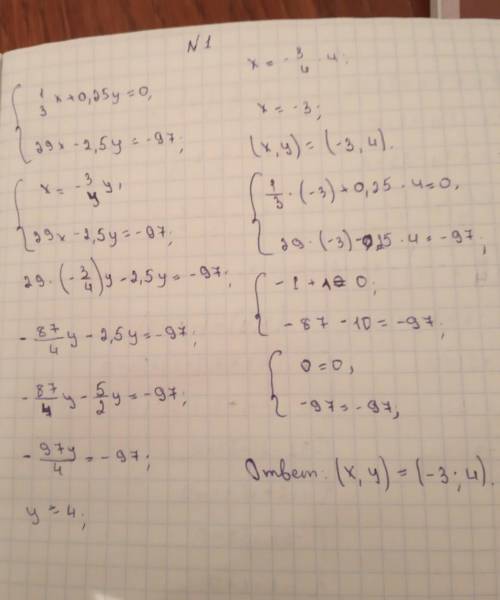 N1
1/3 x + 0,25y = 0,
29x - 2,5y = -97;
x = -3/4 y,
29x - 2,5y = -97;
29 · (-3/4)y - 2,5y = -97;
-87/4 y - 2,5y = -97;
-87/4 y - 5/2 y = -97;
-97y/4 = -97;
y = 4;
x = -3/4 · 4;
x = -3;
(x, y) = (-3, 4).
1/3 · (-3) + 0,25 · 4 = 0,
29 · (-3) - 2,5 · 4 = -97;
-1 + 1 = 0;
-87 - 10 = -97;
0 = 0,
-97 = -97,
Ответ: (x, y) = (-3; 4).